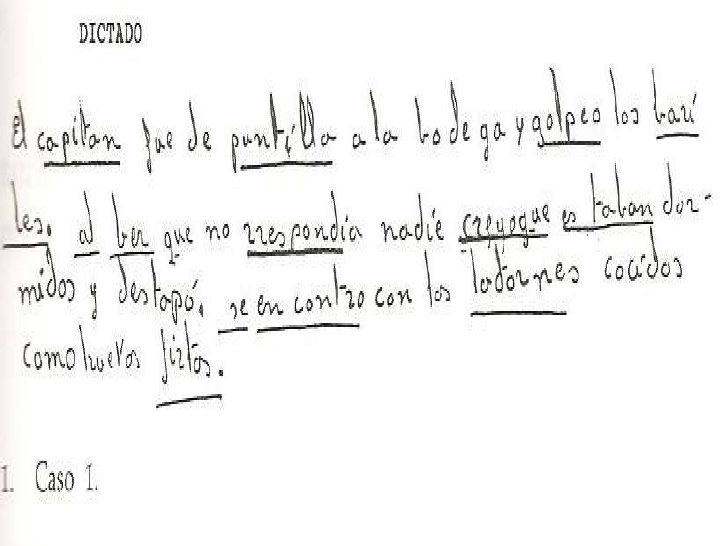 DICTADO
El capitan fue de puntilla a la bodega y golpeo los bari
les. al ber que no rrespondia nadie creyoque es taban dor-
midos y destapó. se en contro con los ladornes cocidos
como huevos firtos.
1. Caso 1.